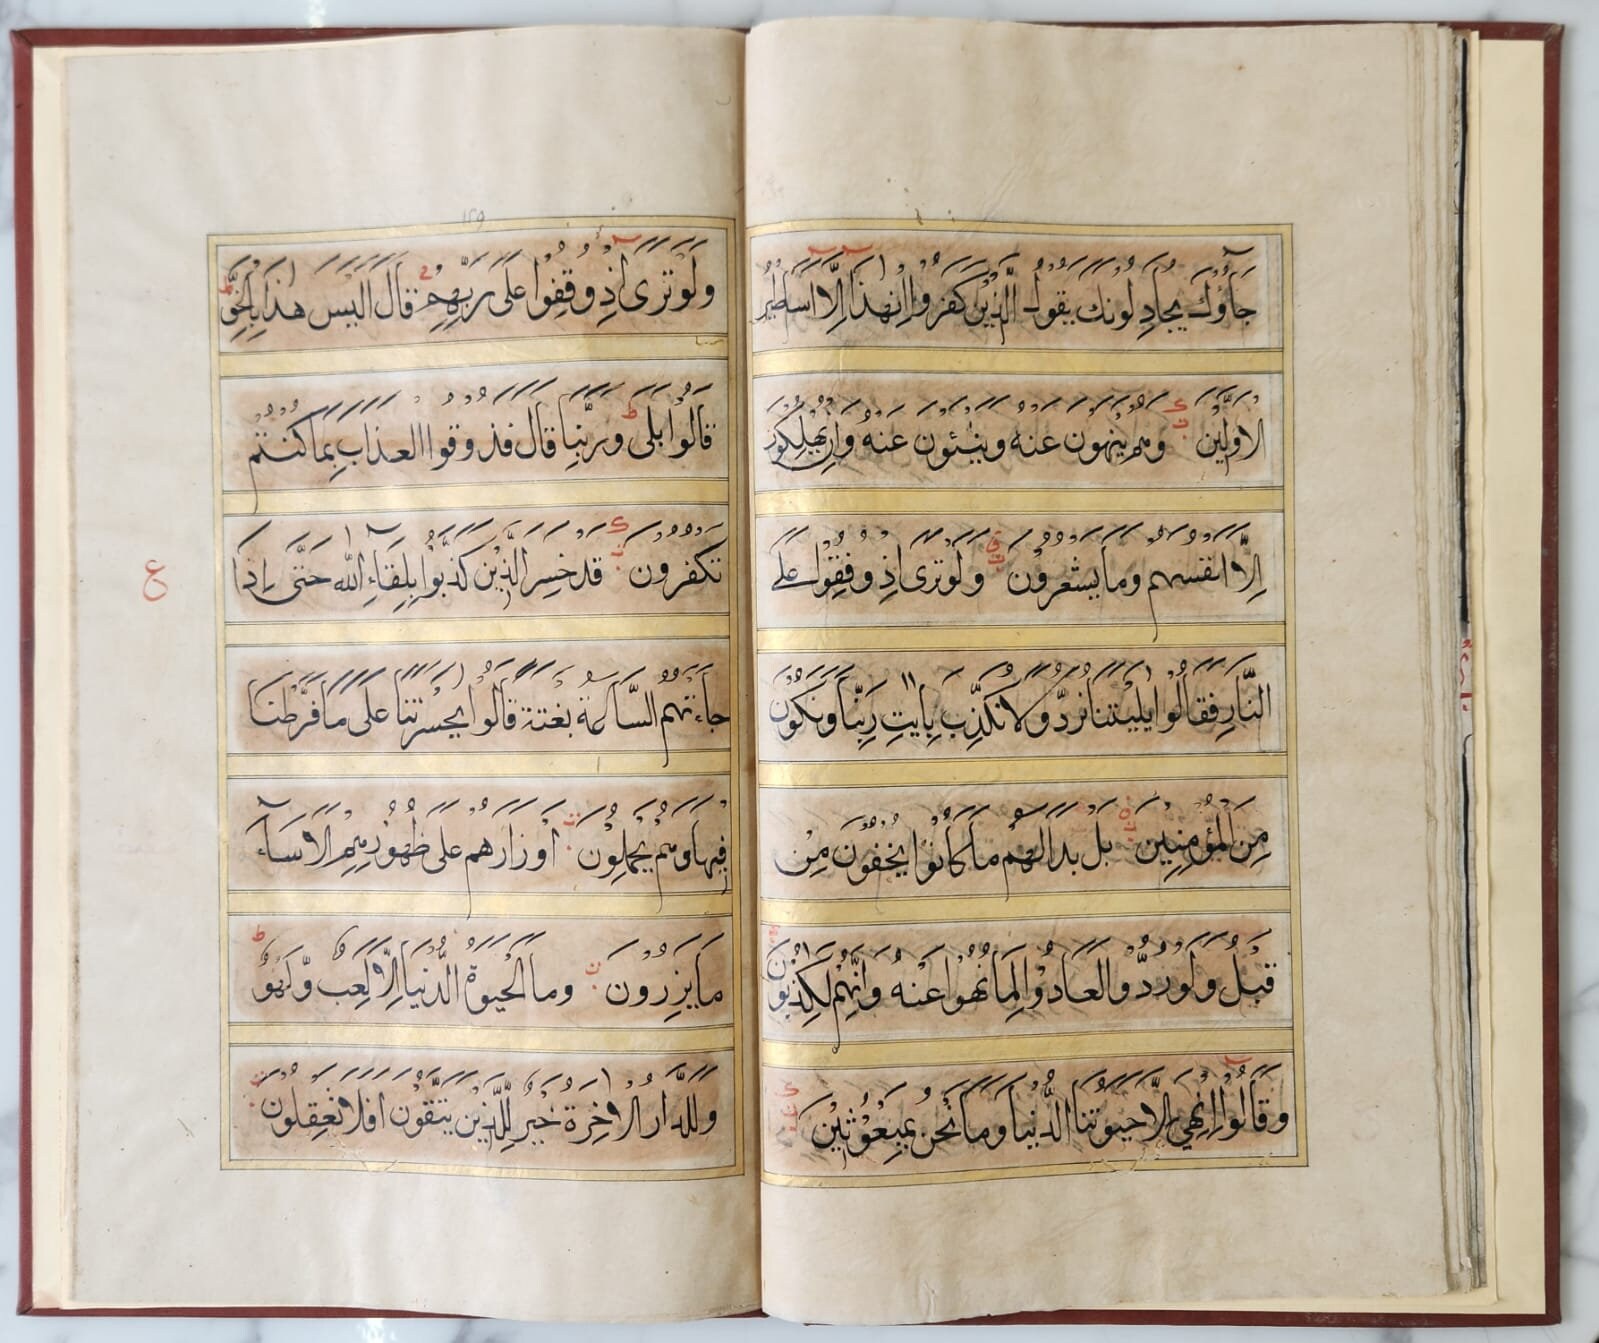 جَآؤُكَ يُجَادِلُونَكَ يَقُولُ الَّذِيْنَ كَفَرُوْا اِنْ هٰذَا اِلَّا اَسَاطِيْرُ
الْاَوَّلِيْنَ وَهُمْ يَنْهَوْنَ عَنْهُ وَيَنْـَٔوْنَ عَنْهُ وَاِنْ يُهْلِكُوْنَ
اِلَّا اَنْفُسَهُمْ وَمَا يَشْعُرُوْنَ وَلَوْ تَرٰى اِذْ وُقِفُوْا عَلَى
النَّارِ فَقَالُوْا يٰلَيْتَنَا نُرَدُّ وَلَا نُكَذِّبَ بِاٰيٰتِ رَبِّنَا وَنَكُوْنَ
مِنَ الْمُؤْمِنِيْنَ بَلْ بَدَا لَهُمْ مَا كَانُوْا يُخْفُوْنَ مِنْ
قَبْلُ وَلَوْ رُدُّوْا لَعَادُوْا لِمَا نُهُوْا عَنْهُ وَاِنَّهُمْ لَكٰذِبُوْنَ
وَقَالُوْا اِنْ هِيَ اِلَّا حَيٰوتُنَا الدُّنْيَا وَمَا نَحْنُ بِمَبْعُوْثِيْنَ
وَلَوْ تَرٰى اِذْ وُقِفُوْا عَلٰى رَبِّهِمْ قَالَ اَلَيْسَ هٰذَا بِالْحَقِّ
قَالُوْا بَلٰى وَرَبِّنَا قَالَ فَذُوْقُوا الْعَذَابَ بِمَا كُنْتُمْ
تَكْفُرُوْنَ قَدْ خَسِرَ الَّذِيْنَ كَذَّبُوْا بِلِقَآءِ اللّٰهِ حَتّٰى اِذَا
جَآءَتْهُمُ السَّاعَةُ بَغْتَةً قَالُوْا يٰحَسْرَتَنَا عَلٰى مَا فَرَّطْنَا
فِيْهَا وَهُمْ يَحْمِلُوْنَ اَوْزَارَهُمْ عَلٰى ظُهُوْرِهِمْ اَلَا سَآءَ
مَا يَزِرُوْنَ وَمَا الْحَيٰوةُ الدُّنْيَا اِلَّا لَعِبٌ وَّلَهْوٌ
وَلَلدَّارُ الْاٰخِرَةُ خَيْرٌ لِّلَّذِيْنَ يَتَّقُوْنَ اَفَلَا تَعْقِلُوْنَ
ع